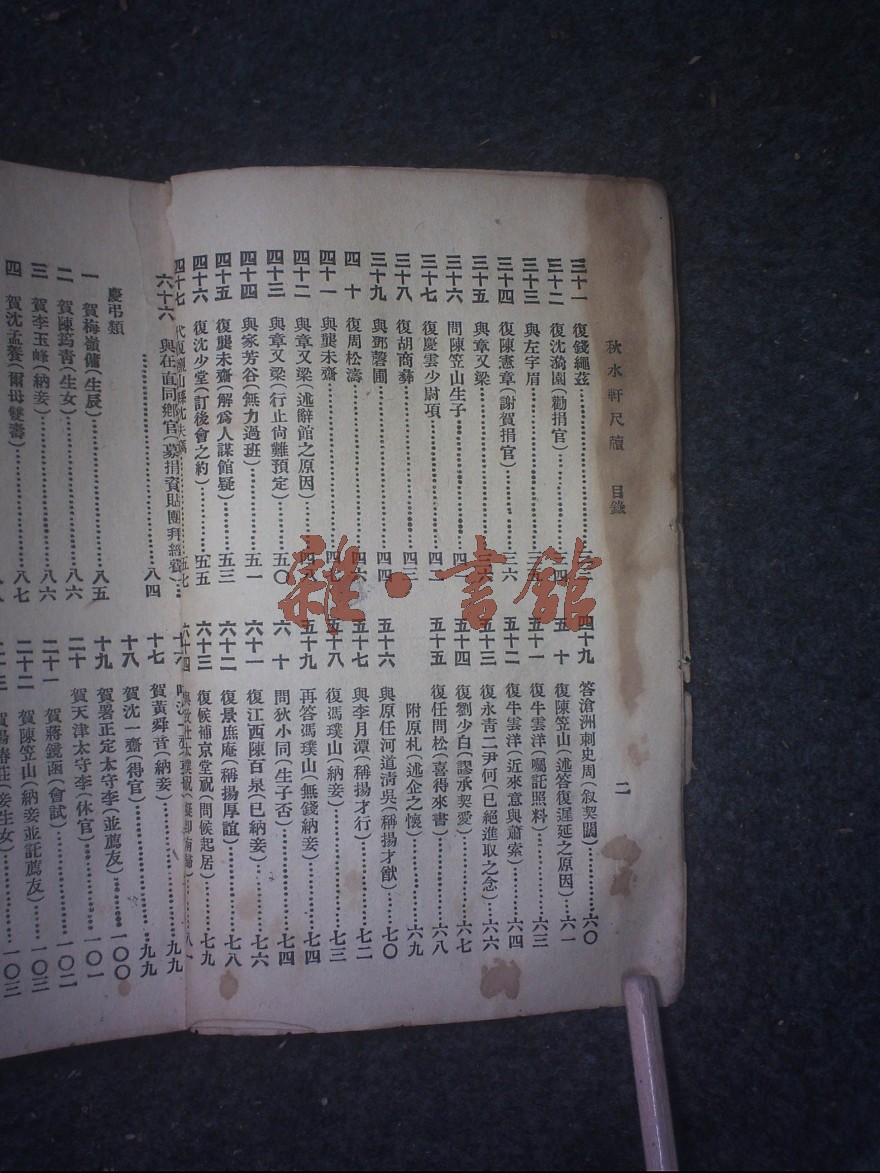 秋水軒尺牘 目錄 二
三十一 復錢繩茲
三十二 復沈漪園(勸捐官)
三十三 與左字眉
三十四 復陳憲章(謝賀捐官) 三六
三十五 與章又梁
三十六 問陳笠山生子
三十七 復慶雲少尉項 四二
三十八 復胡商彝 四三
三十九 與鄧磬圃 四四
四十 復周松濤 四六
四十一 與龔未齋 四七
四十二 與章又梁(述辭館之原因) 四八
四十三 與章又梁(行止尙難預定) 五〇
四十四 與家芳谷(無力過班) 五一
四十五 復龔未齋(解爲人謀館疑) 五三
四十六 復沈少堂(訂後會之約) 五五
四十七 五七
四十九 答滄洲刺史周(叙契闊) 六〇
五十 復陳笠山(述答復遲延之原因) 六一
五十一 復牛雲洋(囑託照料) 六三
五十二 復牛雲洋(近來意與蕭索) 六四
五十三 復永靑二尹何(已絕進取之念) 六六
五十四 復劉少白(謬承契愛) 六七
五十五 復任問松(喜得來書) 六八
附原札(述企之懷) 六九
五十六 與原任河道淸吳(稱揚才猷) 七〇
五十七 與李月潭(稱揚才行) 七二
五十八 復馮璞山(納妾) 七三
五十九 再答馮璞山(無錢納妾) 七四
六十 問狄小同(生子否) 七四
六十一 復江西陳百泉(已納妾) 七六
六十二 復景庶庵(稱揚厚誼) 七八
六十三 復候補京堂祝(問候起居) 七九
六十四 八一
六十六 與在直同鄕官(募捐資貼團拜經費) 八四
慶弔類
一 賀梅嶺傭(生辰) 八五
二 賀陳筠靑(生女) 八六
三 賀李玉峰(納妾) 八六
四 賀沈孟養(爾母雙壽) 八七
十七 賀黃舜音(納妾) 九九
十八 賀沈一齋(得官) 九九
十九 賀署正定太守李(並薦友) 一〇〇
二十 賀天津太守李(休官) 一〇一
二十一 賀蔣鏡函(會試) 一〇二
二十二 賀陳笠山(納妾並託薦友) 一〇三
一〇三
雜·書館